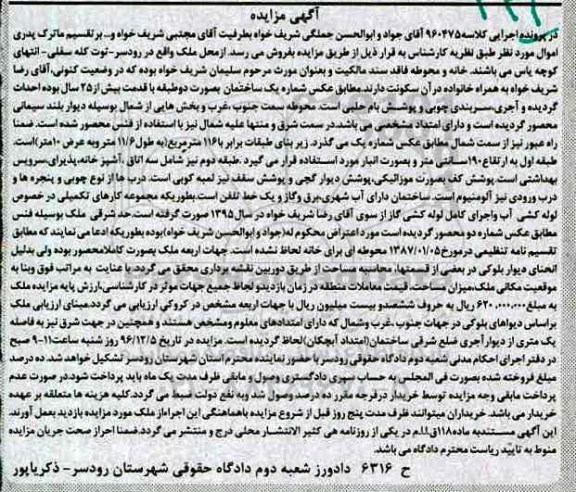 آگهی مزایده
در پرونده اجرایی کلاسه ۹۶۰۴۷۵ آقای جواد و ابوالحسن جملگی شریف خواه بطرفیت آقای مجتبی شریف خواه و... بر تقسیم ماترک پدری
اموال مورد نظر طبق نظریه کارشناس به قرار ذیل از طریق مزایده بفروش می رسد. ازمحل ملک واقع در رودسر-توت کله سفلی- انتهای
کوچه یاس می باشند. خانه و محوطه فاقد سند مالکیت و بعنوان مورث مرحوم سلیمان شریف خواه بوده که در وضعیت کنونی، آقای رضا
شریف خواه به همراه خانواده در آن سکونت دارند. مطابق عکس شماره یک ساختمان بصورت دوطبقه با قدمت بیش از ۲۵ سال بوده احداث
گردیده و آجری، سربندی چوبی و پوشش بام حلبی است. محوطه سمت جنوب، غرب و بخش هایی از شمال بوسیله دیوار بلند سیمانی
محصور گردیده است و دارای امتداد مشخصی می باشد. در سمت شرق و منتها علیه شمال نیز با استفاده از فنس محصور شده است. ضمنا
راه عبور نیز از سمت شمال مطابق عکس شماره یک می گذرد. زیر بنای طبقات برابر با ۱۱۶ مترمربع (به طول ۱۱/۶ متر وبه عرض ۱۰متر) است.
طبقه اول به ارتفاع ۱۹۰ سانتی متر و بصورت انبار مورد استفاده قرار می گیرد. طبقه دوم نیز شامل سه اتاق، آشپز خانه، پذیرای، سرویس
بهداشتی است. پوشش کف بصورت موزائیکی، پوشش دیوار گچی و پوشش سقف نیز لمبه کوبی است. درب ها از نوع چوبی و پنجره ها و
درب ورودی نیز آلومنیوم است. ساختمان دارای آب شهری، برق وگاز و یک خط تلفن است. بطوریکه مجموعه کارهای تکمیلی در خصوص
لوله کشی آب واجرای کامل لوله کشی گاز از سوی آقای رضا شریف خواه در سال ۱۳۹۵ صورت گرفته است. حد شرقی ملک بوسیله فنس
مطابق عکس شماره دو محصور گردیده است مورد اعتراض محکوم له (جواد و ابوالحسن شریف خواه) بوده بطوریکه ادعا می نمایند که مطابق
تقسیم نامه تنظیمی در مورخ ۱۳۸۷/۰۱/۰۵ محوطه ای برای خانه لحاظ نشده است. جهات اربعه ملک بصورت کاملا محصور بوده ولی بدلیل
انحنای دیوار بلوکی در بعضی از قسمتها، محاسبه مساحت از طریق دوربین نقشه برداری محقق می گردد. با عنایت به مراتب فوق وبنا به
موقعیت مکانی ملک، میزان مساحت، قیمت معاملات منطقه در زمان بازدید و لحاظ جمیع جهات موثر در کارشناسی، ارزش پایه مزایده ملک
به مبلغ ۶۲۰,۰۰۰,۰۰۰ ریال به حروف ششصد و بیست میلیون ریال با جهات اربعه مشخص در کروکی ارزیابی می گردد. مبنای ارزیابی ملک
براساس دیوارهای بلوکی در جهات جنوب، غرب وشمال که دارای امتدادهای معلوم ومشخص هستند و همچنین در جهت شرق نیز به فاصله
یک متری از دیوار آجری ضلع شرقی ساختمان (امتداد آبچکان) لحاظ گردیده است. مزایده در تاریخ ۹۶/۱۲/۵ روز شنبه ساعت ۱۱-۹ صبح
در دفتر اجرای احکام مدنی شعبه دوم دادگاه حقوقی رودسر با حضور نماینده محترم دادستان شهرستان رودسر تشکیل خواهد شد. ده درصد
مبلغ فروخته شده بصورت فی المجلس به حساب سپری دادگستری وصول و مابقی ظرف مدت یک ماه باید پرداخت شود. در صورت عدم
پرداخت مابقی وجه مزایده توسط خریدار در فرجه مقرر ده درصد وصول شد وبه نفع دولت ضبط می گردد. کلیه هزینه ها متعلقه بر عهده
خریدار می باشد. خریداران میتوانند ظرف مدت پنج روز قبل از شروع مزایده باهماهنگی این اجرا از ملک مورد مزایده بازدید بعمل آورند.
این آگهی مستند به ماده ۱۱۸ ق.ا.ا.م در یکی از روزنامه هی کثیر الانتشار محلی درج و منتشر می گردد. ضمنا احراز صحت جریان مزایده
منوط به تایید ریاست محترم دادگاه می باشد.
ح ۶۳۱۶ دادورز شعبه دوم دادگاه حقوقی شهرستان رودسر- ذکریاپور